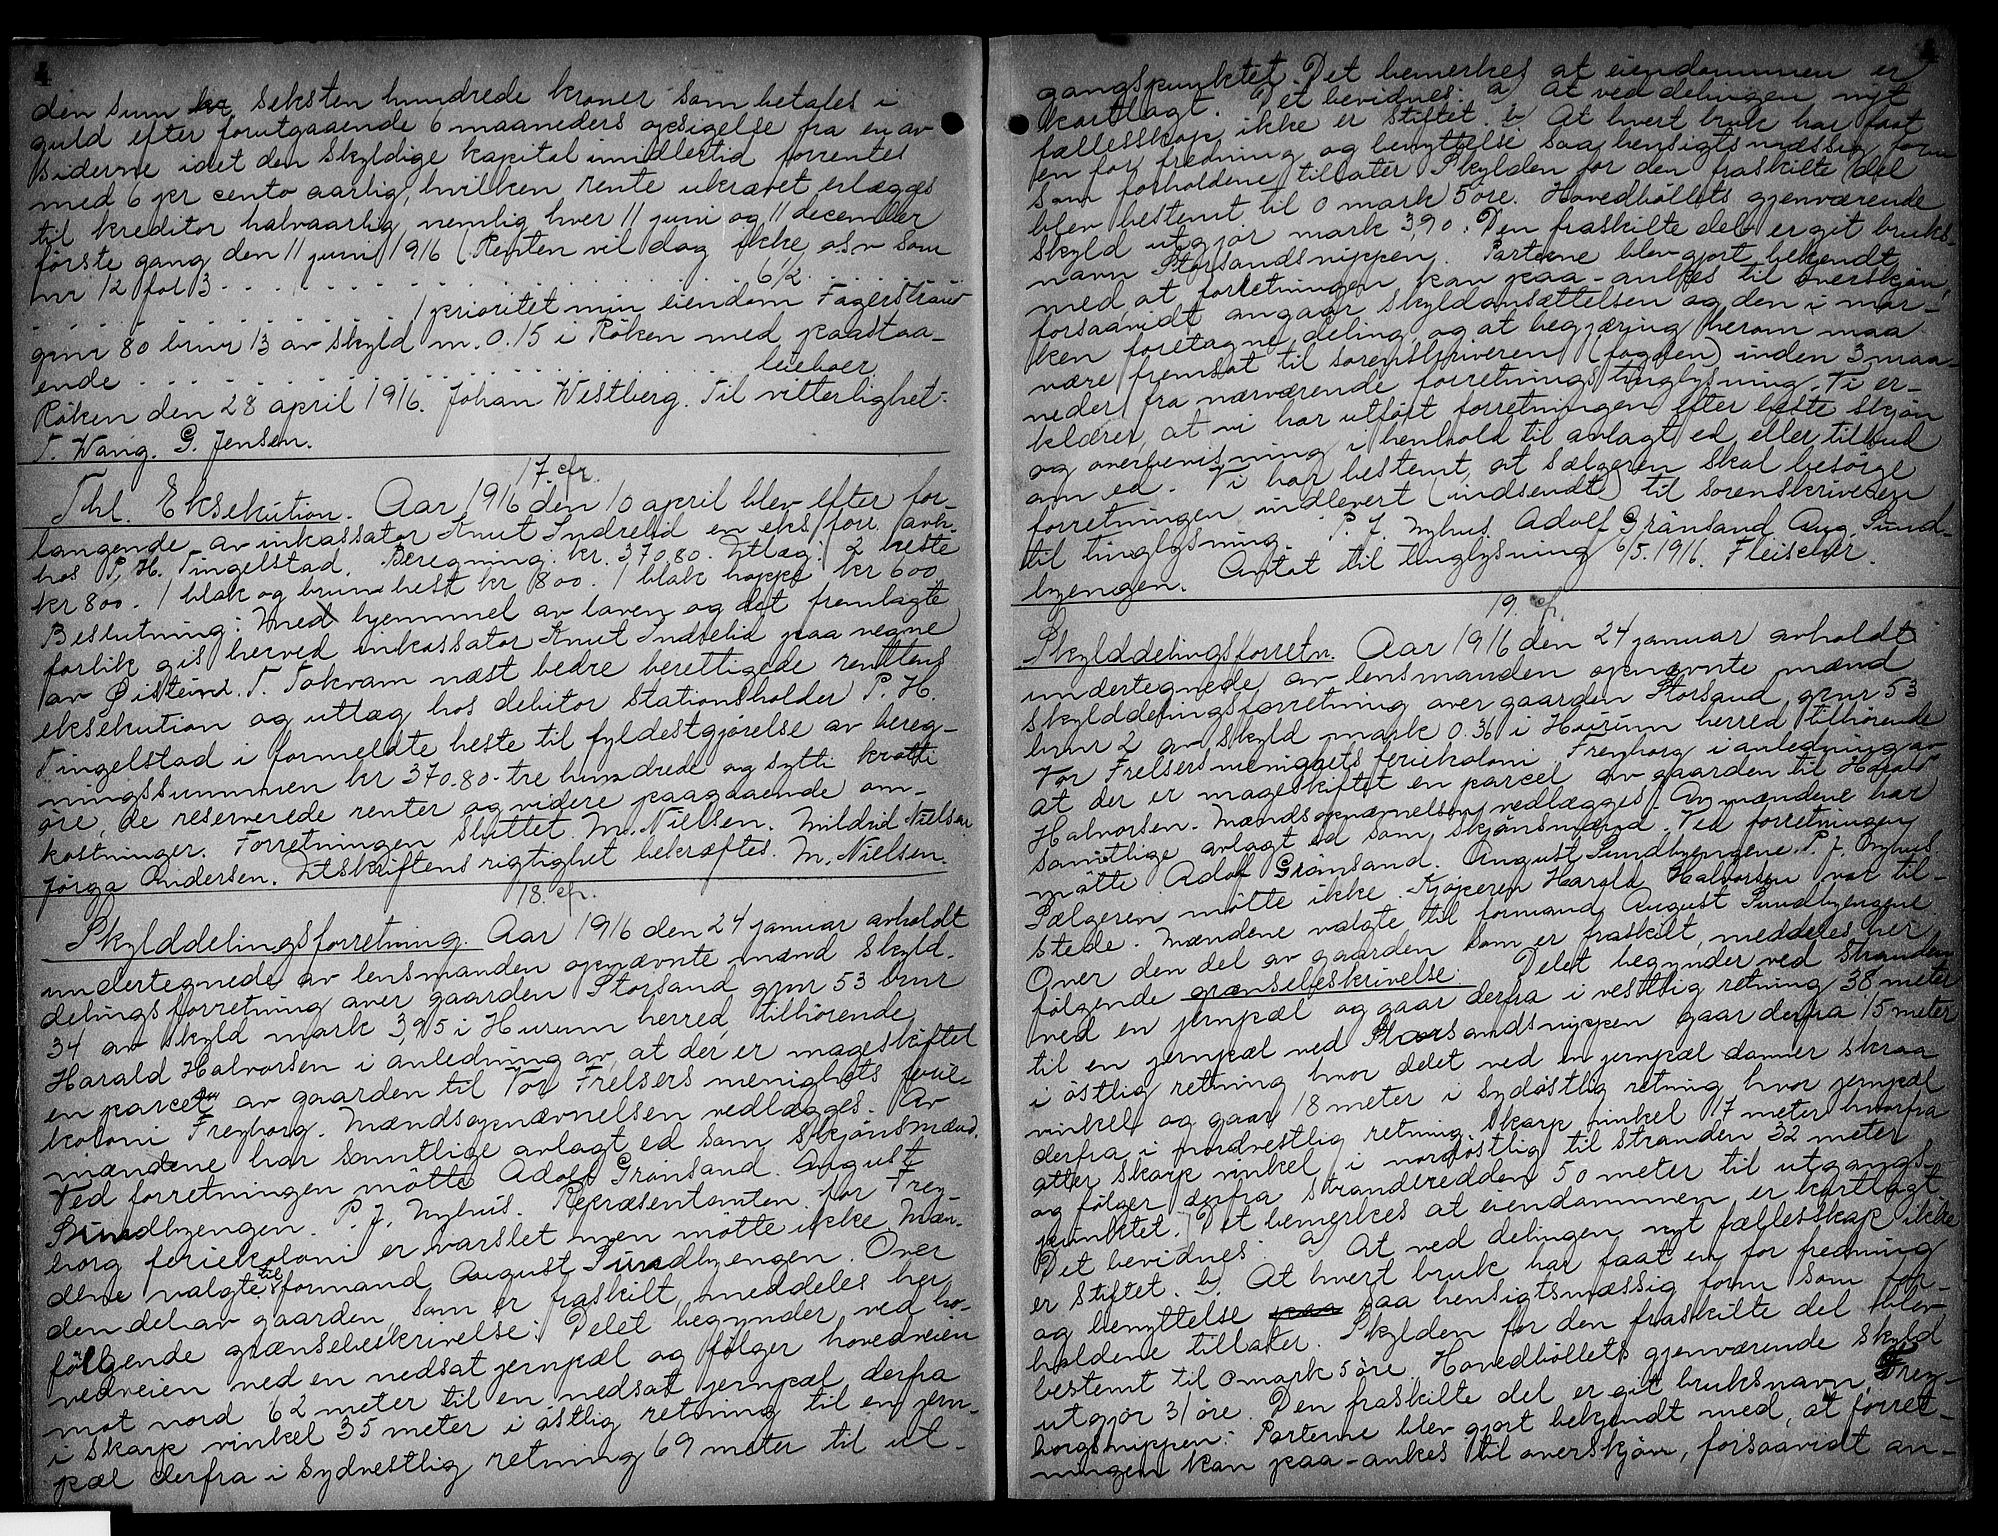 4
den sum kr seksten hundrede kroner som betales i
guld efter forutgaaende 6 maaneders opsigelse fra en av
siderne idet den skyldige kapital imidlertid forrentes
med 6 pr cento aarlig, hvilken rente ukrævet erlægges
til kreditor halvaarlig nemlig hver 11 juni og 11 december
første gang den 11 juni 1916 (Renten vil dog ikke o.s.v som
nr 12 fol 3 . . . . . . . . . . . . . . . . 6½ . . . . . .
. . . . . . . . . . 1 prioritet min eiendom Fagerstrand
gnr 80 brnr 13 av skyld m. 0.15 i Röken med paastaa-
ende . . . . . . . . . . . . . . . . . . . leieboer
Röken den 28 april 1916. Johan Westberg. Til vitterlighet:
T. Wang. G. Jensen.
17. cfr.
Thl. Eksekution. Aar 1916 den 10 april blev efter for-
langende av inkassator Knut Indrelid en eks. forr. avh.
hos P. H. Tingelstad. Beregning: kr. 370.80. Utlæg: 2 heste
kr 800. 1 blak og brun hest kr 800. 1 blak hoppe kr 600
Beslutning: Med hjemmel av loven og det fremlagte
forlik gis herved inkassator Knut Indrelid paa vegne
av Øisteind. T. Tokvam næst bedre berettigede rentens
eksekution og utlæg hos debitor stationsholder P. H.
Tingelstad i formeldte heste til fyldestgjørelse av bereg-
ningssummen kr 370.80- tre hundrede og sytti kr otti
øre, de reserverede renter og videre paagaaende om-
kostninger. Forretningen sluttet. M. Nielsen. Mildrid Nielsen
Jörga Andersen. Utskriftens rigtighet bekræftes. M. Nielsen.
18. cfr.
Skylddelingsforretning. Aar 1916 den 24 januar avholdt
undertegnede av lensmanden opnævnte mænd skyld-
delingsforretning over gaarden Storsand gnr 53 brnr
34 av skyld mark 3,95 i Hurum herred, tilhörende
Harald Halvorsen i anledning av, at der er mageskiftet
en parcel av gaarden til Vor Frelsers menighets ferie-
koloni Freyborg. Mændsopnævnelsen vedlægges. Av
mændene har samtlige avlagt ed som skjönsmænd.
Ved forretningen mötte Adolf Grönsand. August
Sundbyengen. P. J. Nyhus. Repræsentanten for Frey-
borg feriekoloni er varslet men mötte ikke. Mæn-
dene valgte til formand August Sundbyengen. Over
den del av gaarden som er fraskilt, meddeles her
fölgende grænsebeskrivelse: Delet begynder ved ho-
vedveien ved en nedsat jernpæl og fölger hovedveien
mot nord 62 meter til en nedsat jernpæl derfra
i skarp vinkel 35 meter i östlig retning til en jern-
pæl derfra i sydvestlig retning 69 meter til ut-
4
gangspunktet. Det bemerkes at eiendommen er
kartlagt. Det bevidnes: a) At ved delingen nyt
fællesskap ikke er stiftet. b) At hvert bruk har faat
en for fredning og benyttelse saa hensigtsmæssig form
som forholdene tillater Skylden for den fraskilte del
blev bestemt til 0 mark 5 öre. Hovedböllets gjenværende
skyld utgjör mark 3,90. Den fraskilte del er git bruks-
navn Storsandsnippen. Parterne blev gjort bekjendt
med, at forretningen kan paa-ankes til overskjön,
forsaavidt angaar skyldansættelsen og den i mar-
ken foretagne deling, og at begjæring herom maa
være fremsat til sorenskriveren (fogden) inden 3 maa-
neder fra nærværende forretnings tinglysning. Vi er-
klærer, at vi har utfört forretningen efter beste skjön
og overbevisning i henhold til avlagt ed eller tilbud
om ed. Vi har bestemt, at sælgeren skal besörge
forretningen indlevert (indsendt) til sorenskriveren
til tinglysning. P. J. Nyhus. Adolf Grönsand. Aug. Sund-
byengen. Antat til tinglysning 6/5. 1916. Fleischer.
19. cfr.
Skylddelingsforretn. Aar 1916 den 24 januar avholdt
undertegnede av lensmanden opnævnte mænd
skylddelingsforretning over gaarden Storsand gnr 53
brnr 2 av skyld mark 0.36 i Hurum herred tilhörende
Vor Frelsers menighets feriekoloni Freyborg i anledning av
at der er mageskiftet en parcel av gaarden til Harald
Halvorsen. Mændsopnævnelsen vedlægges. Av mændene har
samtlige avlagt ed som skjönsmænd. Ved forretningen
mötte Adolf Grönsand. August Sundbyengene. P. J. Nyhus.
Sælgeren mötte ikke. Kjöperen Harald Halvorsen var til-
stede. Mændene valgte til formand August Sundbyengene.
Over den del av gaarden som er fraskilt, meddeles her
fölgende grænsebeskrivelse: Delet begynder ved stranden
ved en jernpæl og gaar derfra i vestlig retning 38 meter
til en jernpæl ved Storsandsnippen gaar derfra 15 meter
i östlig retning hvor delet ved en jernpæl danner skraa
vinkel og gaar 18 meter i sydöstlig retning hvor jernpæl
derfra i nordvestlig retning skarp vinkel 17 meter hvorfra
atter skarp vinkel i nordöstlig til stranden 32 meter
og fölger derfra strandbredden 50 meter til utgangs-
punktet. Det bemerkes at eiendommen er kartlagt.
Det bevidnes: a) At ved delingen nyt fællesskap ikke
er stiftet. b) At hvert bruk har faat en for fredning
og benyttelse saa hensigtsmæssig form som for-
holdene tillater. Skylden for den fraskilte del blev
bestemt til 0 mark 5 öre. Hovedböllets gjenværende skyld
utgjör 31 öre. Den fraskilte del er git bruksnavn Frey-
borgsnippen. Parterne blev gjort bekjendt med, at forret-
ningen kan paa-ankes til overskjön, forsaavidt an-